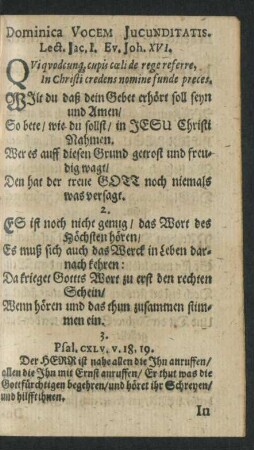 Dominica VOCEM JUCUNDITATIS.
Lect. Jac. I. Ev. Joh. XVI.
QVi qvodcunq; cupis cœli de rege referre,
In Christi credens nomine funde preces.
WIlt du daß dein Gebet erhört soll seyn
und Amen/
So bete/ wie du sollst/ in JESU Christi
Nahmen.
Wer es auff diesen Grund getrost und freu-
dig wagt/
Den hat der treue GOTT noch niemals
was versagt.
2.
ES ist noch nicht genug/ das Wort des
Höchsten hören/
Es muß sich auch das Werck in Leben dar-
nach kehren:
Da krieget Gottes Wort zu erst den rechten
Schein/
Wenn hören und das thun zusammen stim-
men ein.
3.
Psal. CXLV. v. 18. 19.
Der HERR ist nahe allen die Ihn anruffen/
allen die Ihn mit Ernst anruffen/ Er thut was die
Gottfürchtigen begehren/ und höret ihr Schreyen/
und hilfft ihnen.
In